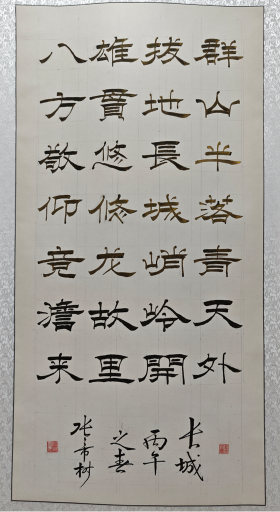 群山半落青天外
拔地長城峭岭開
雄貫悠悠龙故里
八方敬仰竟澹来
长城
丙午
之春